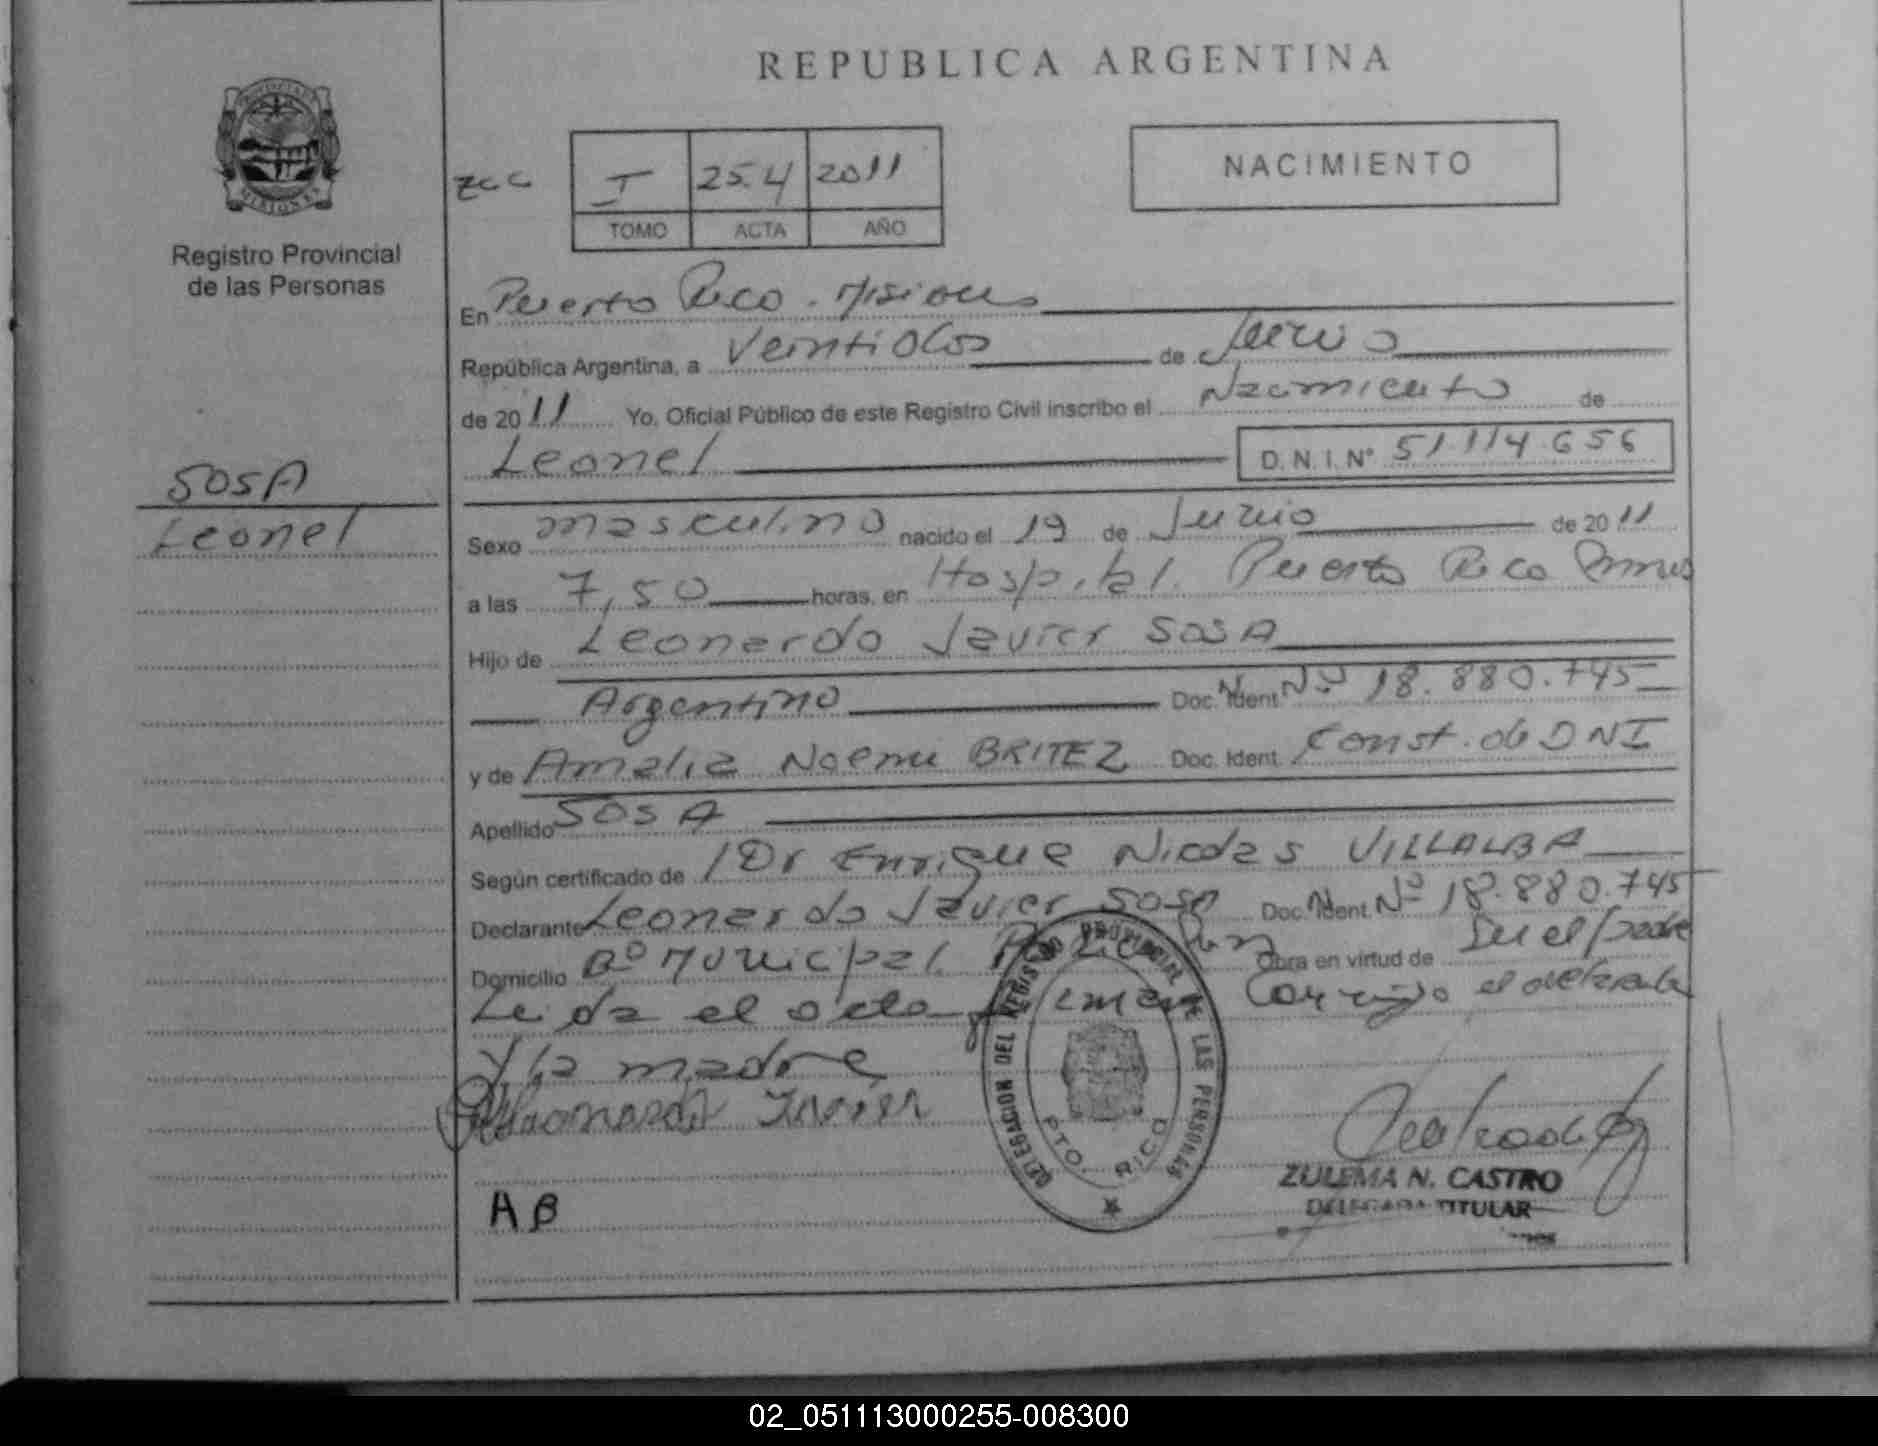 REPUBLICA ARGENTINA
Registro Provincial
de las Personas
zcc
I 254 2011
TOMO ACTA AÑO
NACIMIENTO
SOSA
Leonel
En Puerto Rico. Misiones
República Argentina, a Veintidos de Junio
de 2011 Yo, Oficial Público de este Registro Civil inscribo el Nacimiento de
Leonel D.N.I. N° 51.114.656
Sexo masculino nacido el 19 de Junio de 2011
a las 7,50 horas, en Hospital. Puerto Rico
Hijo de Leonardo Javier SOSA
Argentino Doc. Ident. Nº 18.880.745
y de Amalia Noemi BRITEZ Doc. Ident. Const. de DNI
Apellido SOSA
Según certificado de Dr Enrique Nicolas VILLALBA
Declarante Leonardo Javier Sosa Doc. Ident. Nº 18.880.745
Domicilio Bº Municipal. Obra en virtud de Ser el padre
Leida el acta firman Conmigo el declarante
y la madre
Leonardo Javier
A B
DELEGACION DEL REGISTRO PROVINCIAL DE LAS PERSONAS
PTO. RICO
ZULEMA N. CASTRO
DELEGADA TITULAR
02_051113000255-008300